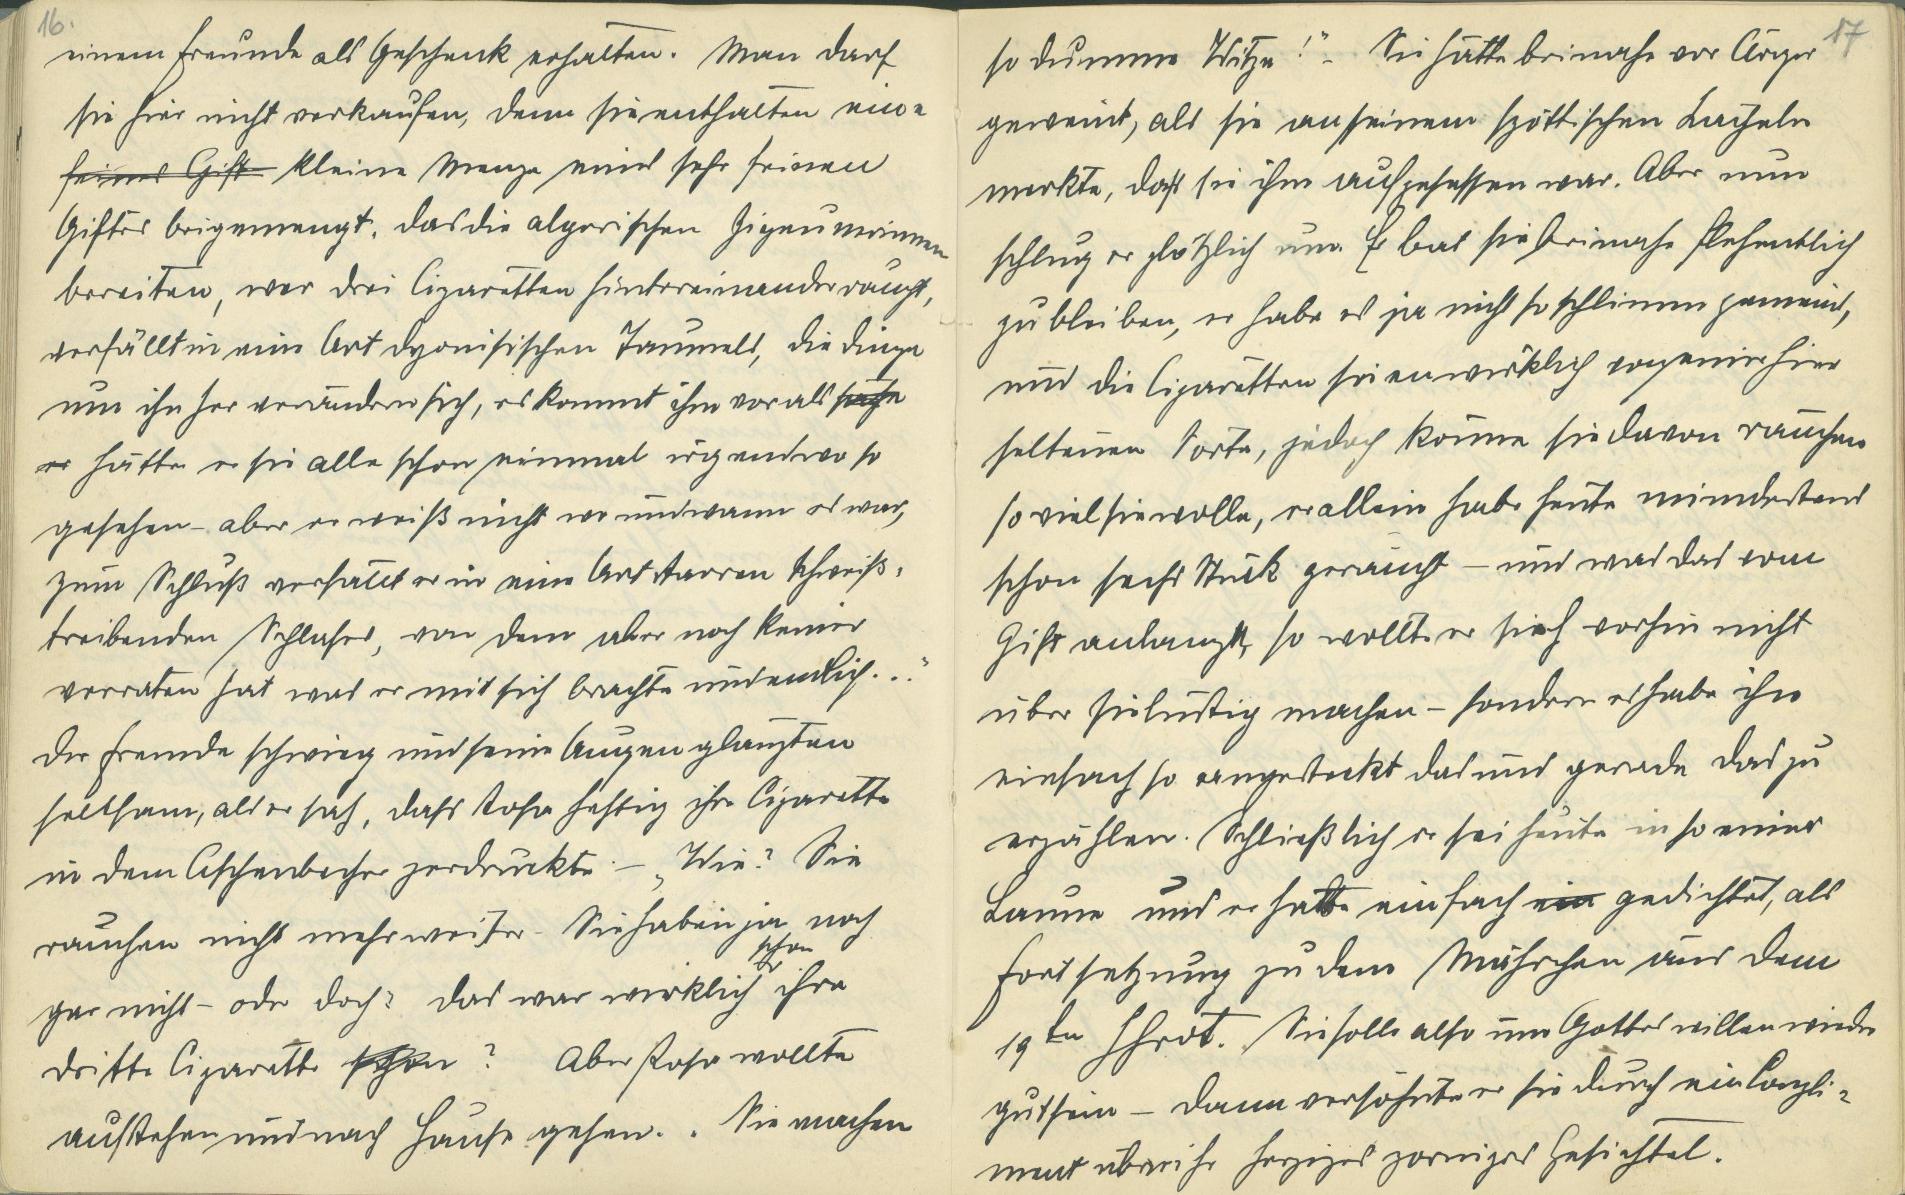 16.
einem Freunde als Geschenk erhalten. Man darf
sie hier nicht verkaufen, denn sie enthalten eine
feines Gift kleine Menge eines sehr feinen
Giftes beigemengt, das die algerischen Zigeunerinnen
bereiten, wer drei Cigaretten hintereinander raucht,
verfällt in eine Art dyonisischen Taumels, die Dinge
um ihn her verändern sich, es kommt ihm vor als
er hätte er sie alle schon einmal irgendwo so
gesehen – aber er weiß nicht wo und wann es war,
zum Schluß verfällt er in eine Art starren schweiß-
treibenden Schlafes, von dem aber noch keiner
verraten hat was er mit sich brachte und endlich..."
Der Fremde schwieg und seine Augen glänzten
seltsam, als er sah, dass Rosa heftig ihre Cigarette
in dem Aschenbecher zerdrückte. – „Wie? Sie
rauchen nicht mehr weiter – Sie haben ja noch
gar nicht – oder doch? Das war wirklich schon ihre
dritte Cigarette schon? Aber Rosa wollte
aufstehen und nach Hause gehen. „Sie machen
17
so dumme Witze!" – Sie hätte beinahe vor Ärger
geweint, als sie an seinem spöttischen Lächeln
merkte, dass sie ihm aufgesessen war. Aber nun
schlug er plötzlich um. Er bat sie beinahe flehentlich
zu bleiben, er habe es ja nicht so schlimm gemeint,
und die Cigaretten seien wirklich von einer hier
seltenen Sorte, jedoch könne sie davon rauchen
so viel sie wolle, er allein habe heute mindestens
schon sechs Stück geraucht – und was das vom
Gift anlangt, so wollte er sich vorhin nicht
über sie lustig machen – sondern es habe ihn
einfach so angesteckt das und gerade das zu
erzählen. Schließlich er sei heute in so einer
Laune und er hatte einfach ein gedichtet, als
Fortsetzung zu dem Mährchen aus dem
19ten Jhrdt. Sie solle also um Gottes willen wieder
gut sein – dann versöhnte er sie durch ein Compli-
ment über ihr herziges zorniges Gesichtel.